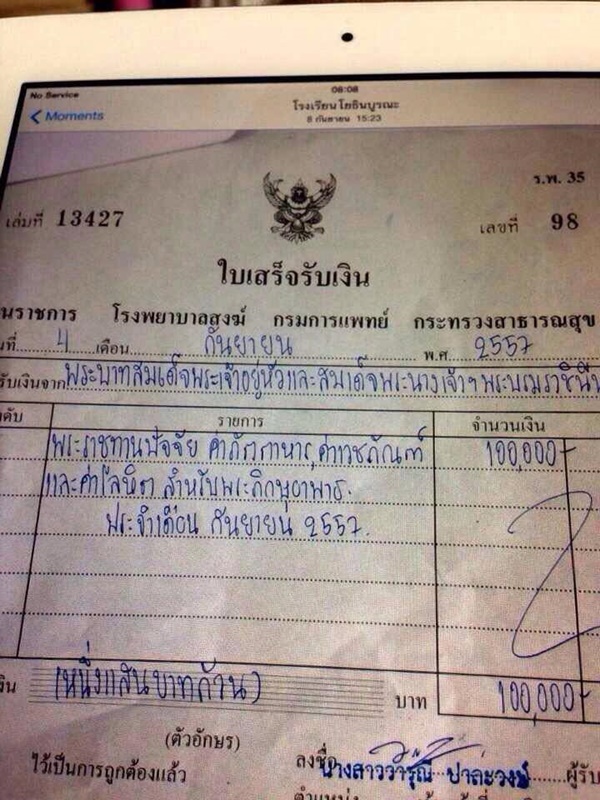 No Service
08:08
Moments
โรงเรียนโยธินบูรณะ
8 กันยายน 15:23
ร.พ. 35
เล่มที่ 13427
เลขที่ 98
ใบเสร็จรับเงิน
นราชการ โรงพยาบาลสงฆ์ กรมการแพทย์ กระทรวงสาธารณสุข
นที่ 4 เดือน กันยายน พ.ศ. 2557
รับเงินจาก พระบาทสมเด็จพระเจ้าอยู่หัวและสมเด็จพระนางเจ้าฯ พระบรมราชินีน
ดับ รายการ จำนวนเงิน
พระราชทานปัจจัย ค่าภัตตาหาร, ค่าเวชภัณฑ์ 100,000-
และค่าโลหิต สำหรับพระภิกษุอาพาธ.
ประจำเดือน กันยายน 2557.
งิน (หนึ่งแสนบาทถ้วน) บาท 100,000-
(ตัวอักษร)
ไว้เป็นการถูกต้องแล้ว
ลงชื่อ นางสาววารุณี ปาละวงษ์ ผู้รับ
ตำแหน่ง